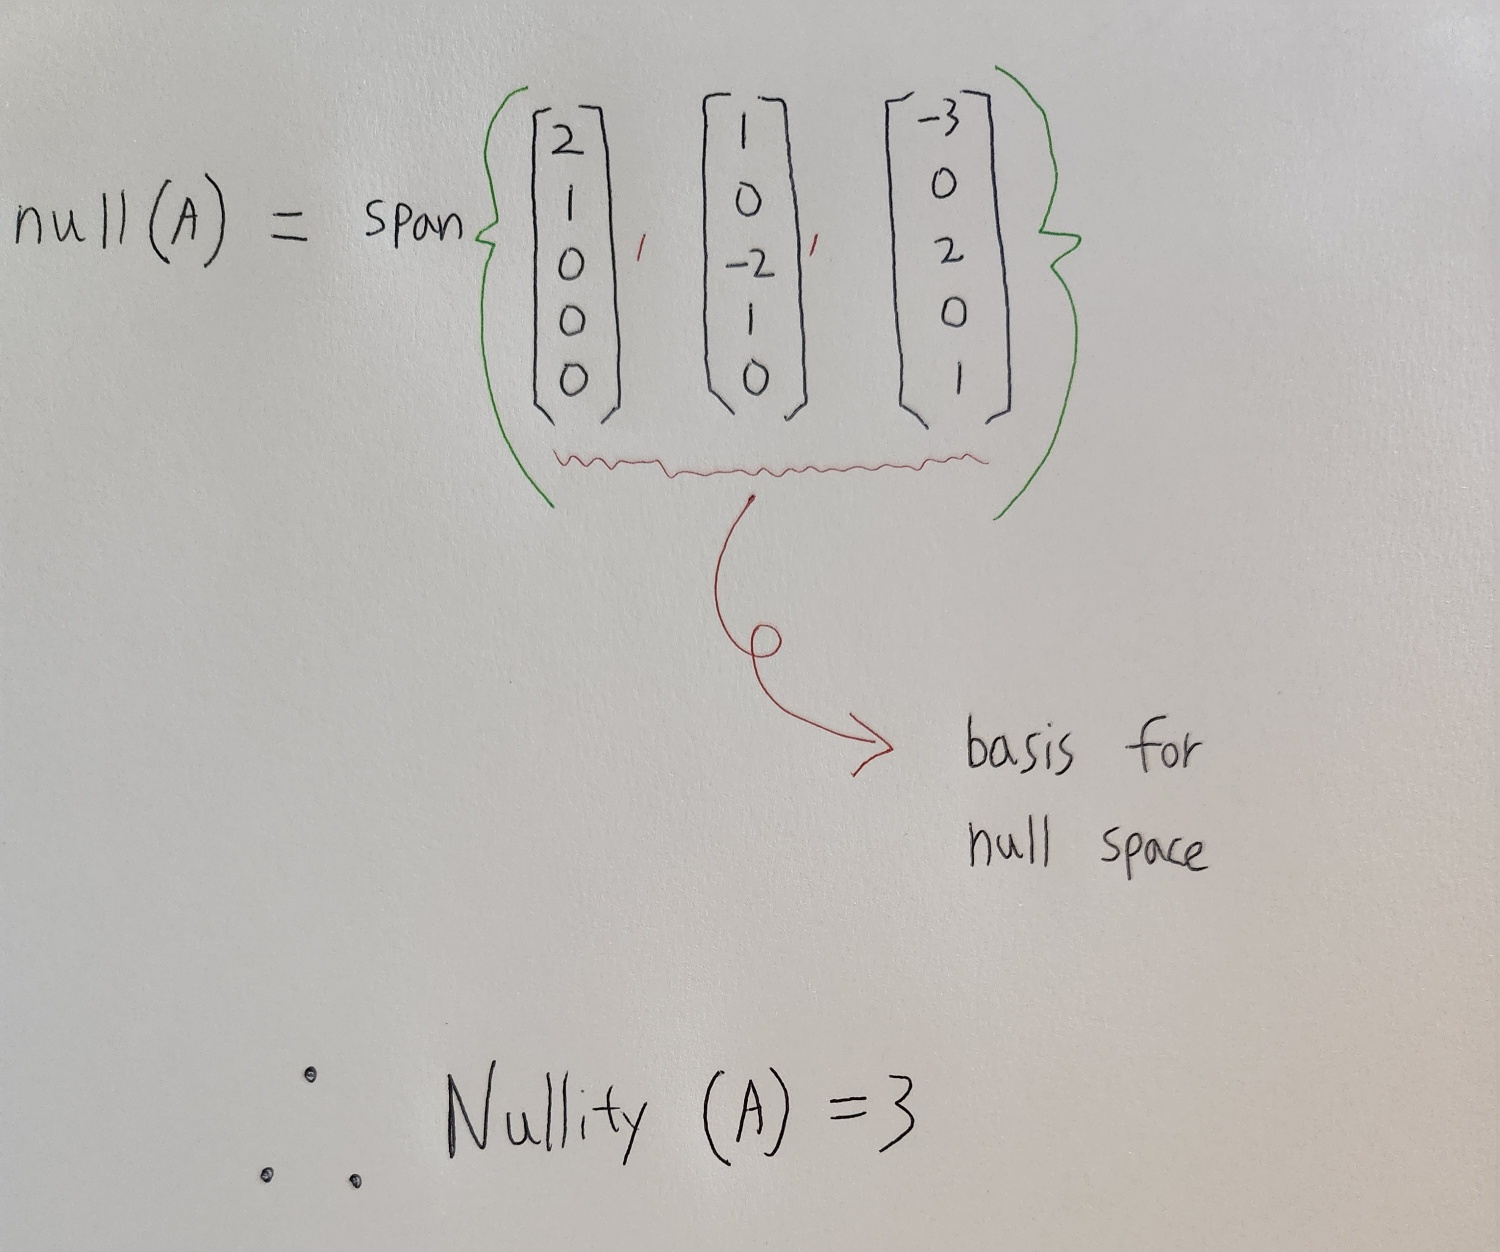 null(A) = span { [2 1 0 0 0], [1 0 -2 1 0], [-3 0 2 0 1] }
basis for
null space
∴ Nullity (A) = 3